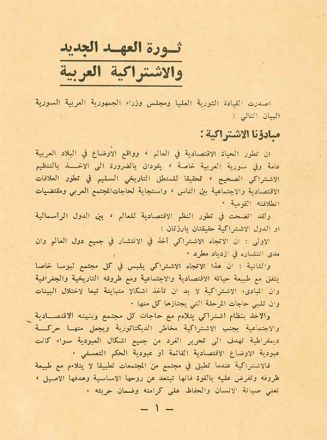 ثورة العهد الجديد
والاشتراكية العربية
اصدرت القيادة الثورية العليا ومجلس وزراء الجمهورية العربية السورية
البيان التالي :
مبادؤنا الاشتراكية :
ان تطور الحياة الاقتصادية في العالم ، وواقع الاوضاع في البلاد العربية
عامة وفي سورية العربية خاصة ، يقودان بالضرورة الى الاخذ بالتنظيم
الاشتراكي الصحيح ، تحقيقا للمنطق التاريخي السليم في تطور العلاقات
الاقتصادية والاجتماعية بين الناس ، واستجابة لحاجات المجتمع العربي ومقتضيات
انطلاقته القومية .
ولقد اتضحت في تطور النظم الاقتصادية للعالم ، بين الدول الرأسمالية
او الدول الاشتراكية حقيقتان بارزتان :
الاولى : ان الاتجاه الاشتراكي آخذ في الانتشار في جميع دول العالم وان
مدى انتشاره في ازدياد مطرد .
والثانية : ان هذا الاتجاه الاشتراكي يلبس في كل مجتمع لبوسا خاصا
يتفق مع طبيعة حياته الاقتصادية والاجتماعية ومع ظروفه التاريخية والجغرافية
وان المبادىء الاشتراكية لا بد ان تأخذ اشكالا متباينة تبعا لاختلال البيئات
وان تلبي حاجات المرحلة التي يجتازها كل منها .
والاخذ بنظام اشتراكي يتلاءم مع حاجات كل مجتمع وبنيته الاقتصادية
والاجتماعية يجنب الاشتراكية مخاطر الديكتاتورية ويجعل منها حركة
ديمقراطية تهدف الى تحرير الفرد من جميع اشكال العبودية سواء كانت
عبودية الاوضاع الاقتصادية القائمة أو عبودية الحكم التعسفي .
فالاشتراكية عندما تطبق في مجتمع من المجتمعات تطبيقا لا يتلاءم مع طبيعة
ظروفه وتفرض عليه بالقوة فانها تبتعد عن روحها الاساسية وهدفها الاصيل ،
تعني صيانة الانسان والحفاظ على كرامته وضمان حريته .
— ١ —